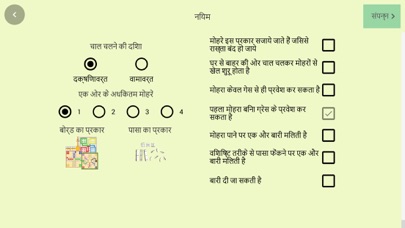 नियम
संपन्न
चाल चलने की दिशा
दक्षिणावर्त वामावर्त
एक ओर के अधिकतम मोहरे
1 2 3 4
बोर्ड का प्रकार पासा का प्रकार
मोहरे इस प्रकार सजाये जाते हैं जिससे
रास्ता बंद हो जाये
घर से बाहर की ओर चाल चलकर मोहरों से
खेल शुरू होता है
मोहरा केवल गेस से ही प्रवेश कर सकता है
पहला मोहरा बिना ग्रेस के प्रवेश कर
सकता है
मोहरा पाने पर एक और बारी मिलती है
विशिष्ट तरीके से पासा फेंकने पर एक और
बारी मिलती है
बारी दी जा सकती है